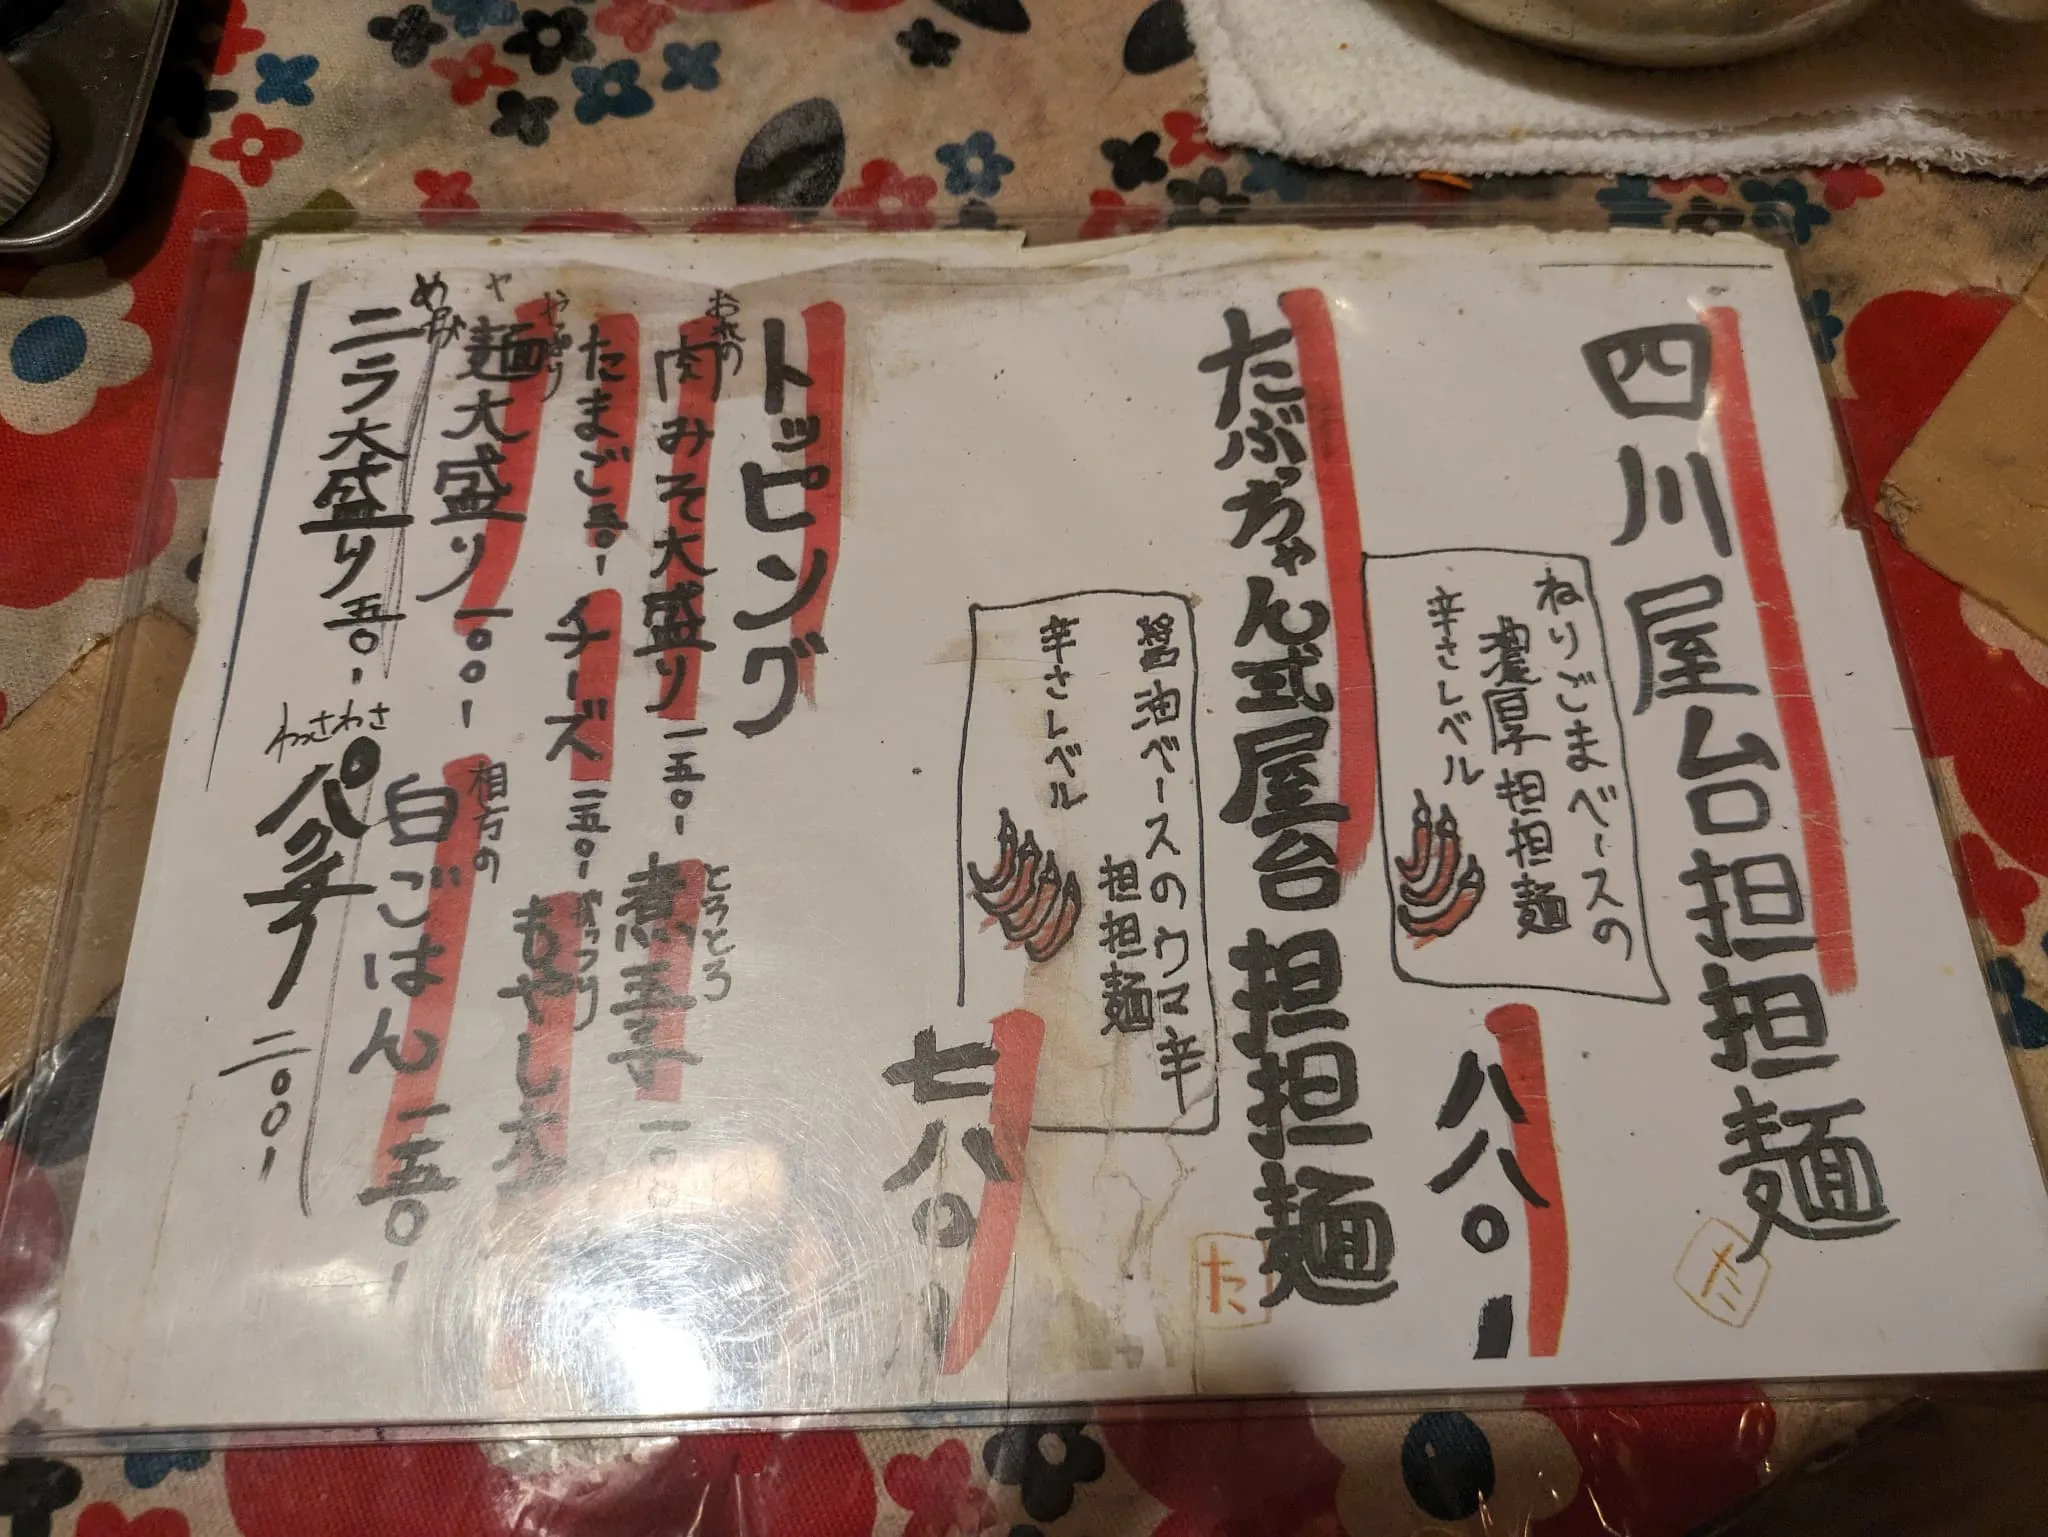 四川屋台担担麺
ねりごまベースの
濃厚担担麺
辛さレベル
八八〇-
た
たぶっちゃん式屋台担担麺
醤油ベースのウマ辛
担担麺
辛さレベル
七八〇-
た
トッピング
おれの
肉みそ大盛り 一五〇-
とろとろ
煮玉子 一〇〇
たまご 五〇-
チーズ 一五〇-
やっぱり
麺大盛り 一〇〇-
がっつり
もやし大
ニラ大盛り 五〇-
相方の
白ごはん 一五〇-
わさわさ
パク子 二〇〇-